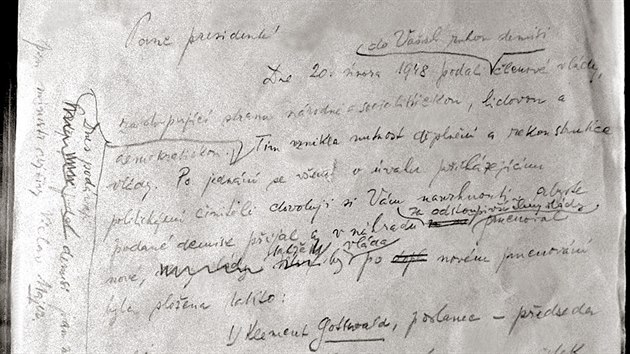 Pane presidente!
do Vašich rukou demisi
Dne 20. února 1948 podali členové vlády,
zastupující stranu národně socialistickou, lidovou a
demokratickou. Tím vznikla nutnost doplnění a rekonstrukce
vlády. Po jednání se všemi v úvahu přicházejícími
politickými činiteli dovoluji si Vám navrhnouti, abyste
za odstoupivší členy vlády
podané demise přijal a v náhradu jmenoval
nové, by vláda po novém jmenování
byla složena takto:
1/ Klement Gottwald, poslanec – předseda
Dnes podal
demisi pan
Václav Majer.